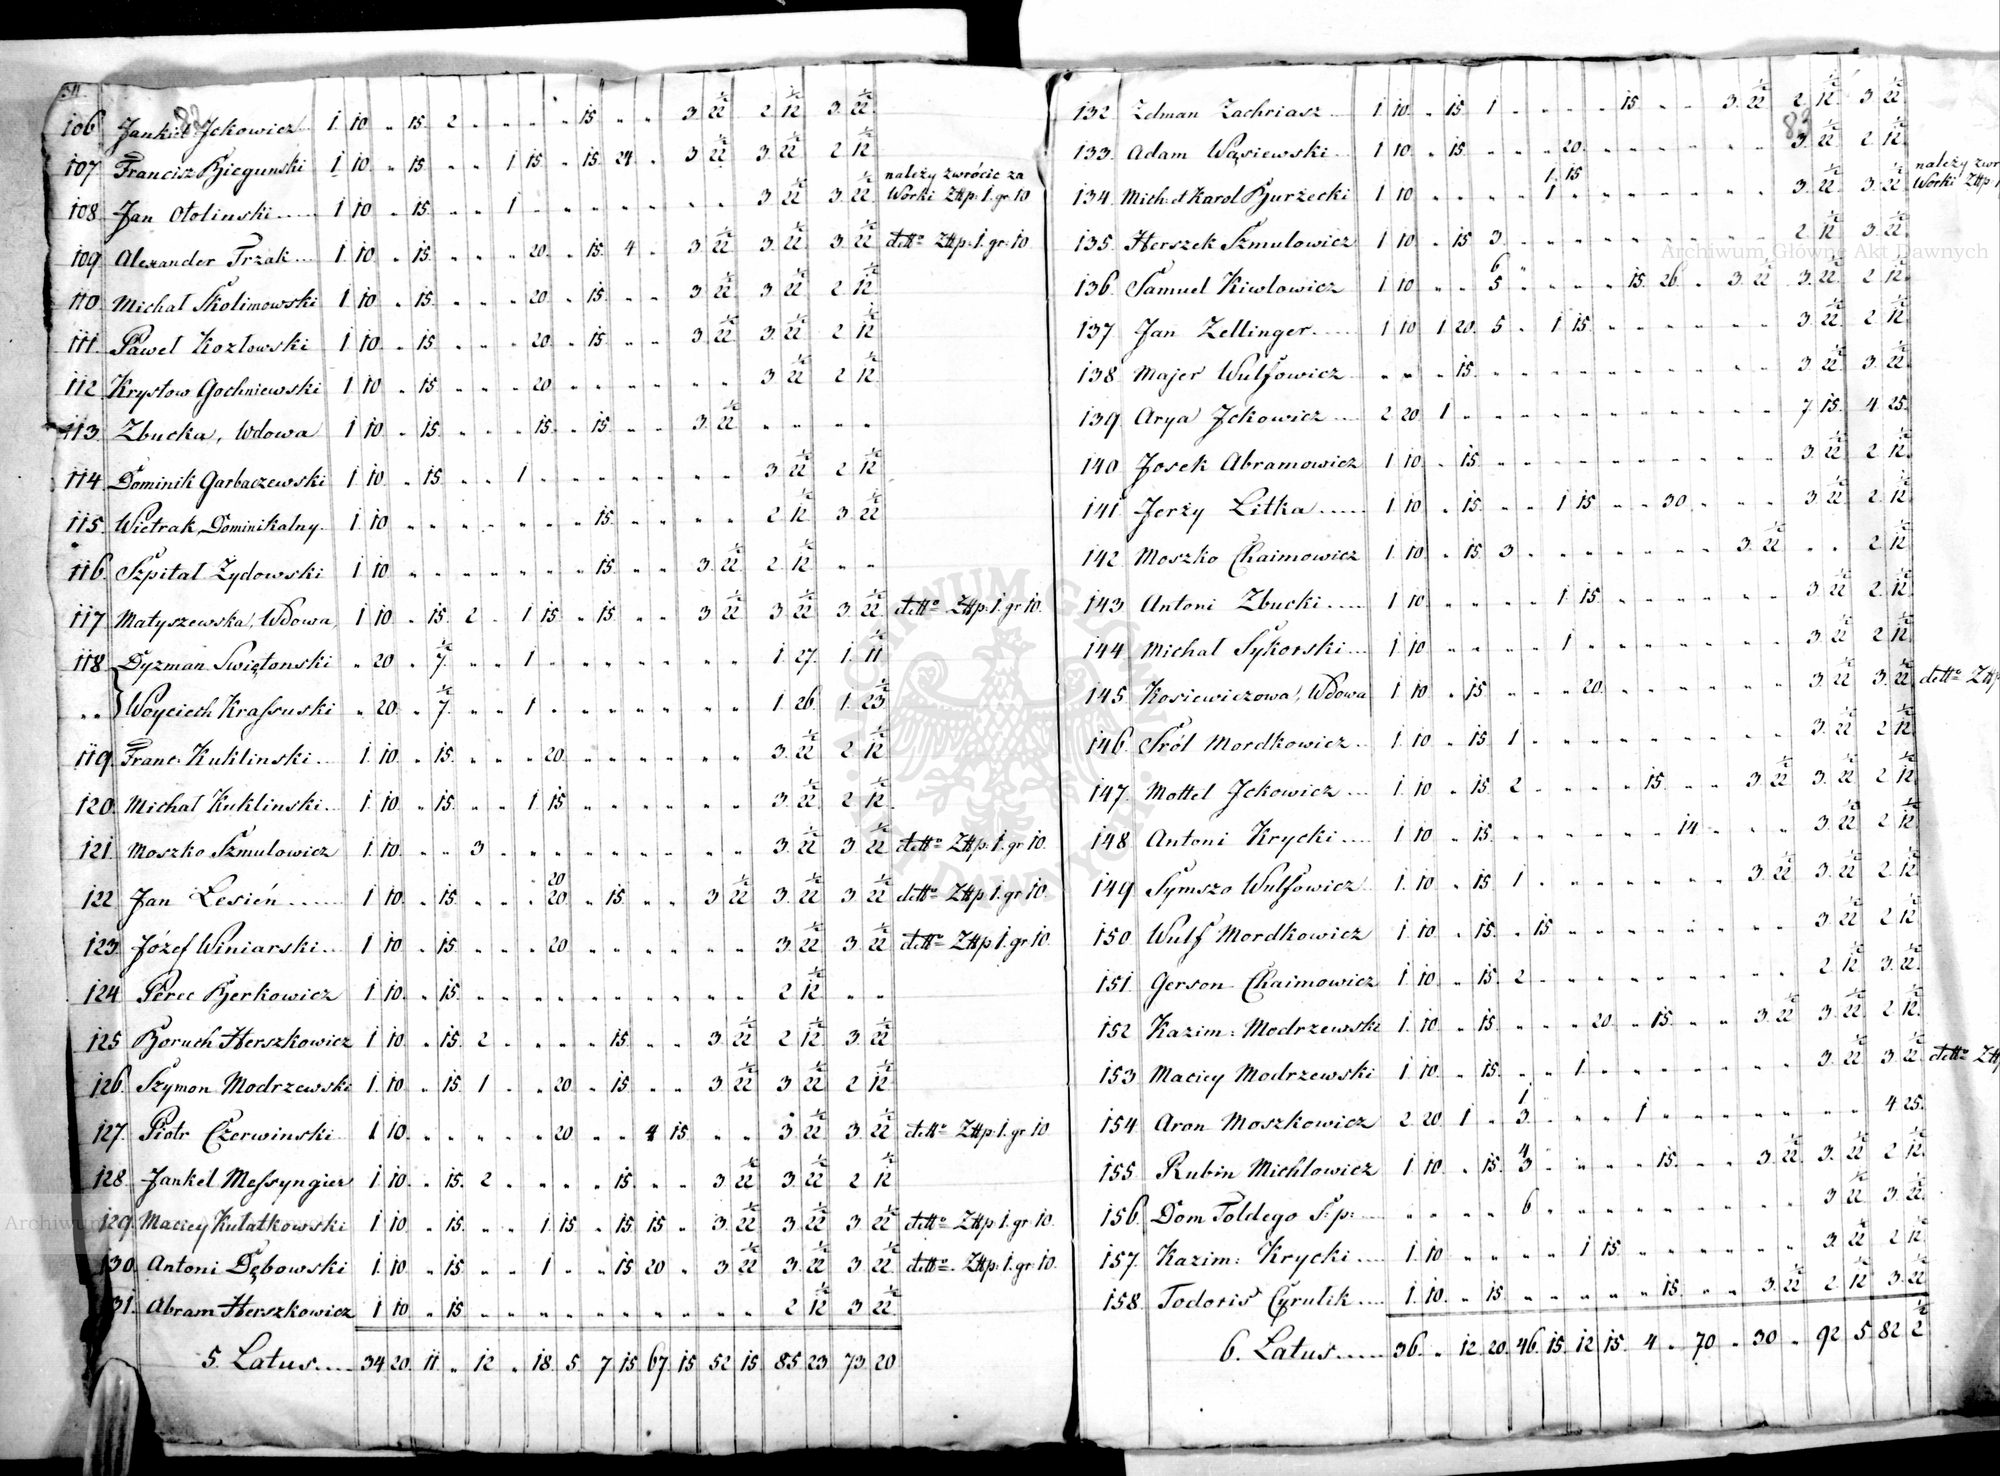 106. Jankiel Jckowicz 1 10 „ 15 2 „ „ „ „ 15 „ „ 3 22½ 2 12½ 3 22½
107. Francisz Biegunski 1 10 „ 15 „ „ 1 15 „ 15 24 „ 3 22½ 3 22½ 2 12½
należy zwrócic za
108. Jan Otolinski 1 10 „ 15 „ „ 1 „ „ „ „ „ „ „ 3 22½ 3 22½ Worki Złłp: 1. gr 10
109 Alexander Trzak 1 10 „ 15 „ „ „ 20 „ 15 4 „ 3 22½ 3 22½ 3 22½ detto Złłp: 1. gr: 10
110 Michał Skolimowski 1 10 „ 15 „ „ „ 20 „ 15 „ „ 3 22½ 3 22½ 2 12½
111 Paweł Kozłowski 1 10 „ 15 „ „ „ 20 „ 15 „ „ 3 22½ 3 22½ 2 12½
112 Krystow Gochniewski 1 10 „ 15 „ „ „ 20 „ „ „ „ „ „ 3 22½ 2 12½
113 Zbucka, Wdowa 1 10 „ 15 „ „ „ 15 „ 15 „ „ 3 22½ „ „ „ „
114 Dominik Garbaczewski 1 10 „ 15 „ „ 1 „ „ „ „ „ „ „ 3 22½ 2 12½
115 Wietrak, Dominikalny 1 10 „ „ „ „ „ „ „ 15 „ „ „ „ 2 12½ 3 22½
116 Szpital Żydowski 1 10 „ „ „ „ „ „ „ 15 „ „ 3 22½ 2 12½ „ „
117 Matyszewska, Wdowa 1 10 „ 15 2 „ 1 15 „ 15 „ „ 3 22½ 3 22½ 3 22½ detto Złłp: 1. gr 10
118 Dyzman Swiętonski „ 20 „ 7½ „ „ 1 „ „ „ „ „ „ „ 1 27 1 11½
„ „ Woyciech Krassuski „ 20 „ 7½ „ „ 1 „ „ „ „ „ „ „ 1 26 1 23½
119 Franc: Kuklinski 1 10 „ 15 „ „ „ 20 „ „ „ „ „ „ 3 22½ 2 12½
120 Michał Kuklinski 1 10 „ 15 „ „ 1 15 „ „ „ „ „ „ 3 22½ 2 12½
121 Moszko Szmulowicz 1 10 „ „ 3 „ „ „ „ „ „ „ „ „ 3 22½ 3 22½ detto Złłp: 1. gr 10
20
122 Jan Lesień 1 10 „ 15 „ „ „ 20 „ 15 „ „ 3 22½ 3 22½ 3 22½ detto Złłp 1. gr 10
123 Józef Winiarski 1 10 „ 15 „ „ „ 20 „ „ „ „ „ „ 3 22½ 3 22½ detto Złłp 1. gr 10
124 Perec Berkowicz 1 10 „ 15 „ „ „ „ „ „ „ „ „ „ 2 12½ „ „
125 Boruch Herszkowicz 1 10 „ 15 2 „ „ „ „ 15 „ „ 3 22½ 2 12½ 3 22½
126 Szymon Modrzewski 1 10 „ 15 1 „ „ 20 „ 15 „ „ 3 22½ 3 22½ 2 12½
127 Piotr Czerwinski 1 10 „ „ „ „ „ 20 „ „ 4 15 „ „ 3 22½ 3 22½ detto Złłp: 1. gr 10
128 Jankel Messyngier 1 10 „ 15 2 „ „ „ „ 15 „ „ 3 22½ 3 22½ 2 12½
129 Maciey Kułatkowski 1 10 „ 15 „ „ 1 15 „ 15 15 „ 3 22½ 3 22½ 3 22½ detto Złłp: 1. gr 10
130 Antoni Dębowski 1 10 „ 15 „ „ 1 „ „ 15 20 „ 3 22½ 3 22½ 3 22½ detto Złłp: 1. gr 10
31 Abram Herszkowicz 1 10 „ 15 „ „ „ „ „ „ „ „ „ „ 2 12½ 3 22½
5. Latus 34 20 11 „ 12 „ 18 5 7 15 67 15 52 15 85 23 73 20
132 Zelman Zachriasz 1 10 „ 15 1 „ „ „ „ 15 „ „ 3 22½ 2 12½ 3 22½
83
133 Adam Wąsiewski 1 10 „ 15 „ „ „ 20 „ „ „ „ „ „ 3 22½ 2 12½
1 15 należy zwr
134 Mich: et Karol Burzecki 1 10 „ „ „ „ 1 „ „ „ „ „ „ „ 3 22½ 3 22½ Worki Złłp
135 Herszek Szmulowicz 1 10 „ 15 3 „ „ „ „ „ „ „ „ „ 2 12½ 3 22½
6
136 Samuel Kiwlowicz 1 10 „ „ 5 „ „ „ „ 15 26 „ 3 22½ 3 22½ 2 12½
137 Jan Zellinger 1 10 1 20 5 „ 1 15 „ „ „ „ „ „ 3 22½ 2 12½
138 Majer Wulfowicz „ „ „ 15 „ „ „ „ „ „ „ „ „ „ 3 22½ 3 22½
139 Arya Jckowicz 2 20 1 „ „ „ „ „ „ „ „ „ „ „ 7 15 4 25
140 Josek Abramowicz 1 10 „ 15 „ „ „ „ „ „ „ „ „ „ 3 22½ 2 12½
141 Jerzy Litka 1 10 „ 15 „ „ 1 15 „ „ 30 „ „ „ 3 22½ 2 12½
142 Moszko Chaimowicz 1 10 „ 15 3 „ „ „ „ „ „ „ 3 22½ „ „ 2 12½
143 Antoni Zbucki 1 10 „ „ „ „ 1 15 „ „ „ „ „ „ 3 22½ 2 12½
144 Michał Sykorski 1 10 „ „ „ „ 1 „ „ „ „ „ „ „ 3 22½ 2 12½
145 Kosiewiczowa, Wdowa 1 10 „ 15 „ „ „ 20 „ „ „ „ „ „ 3 22½ 3 22½ detto Złł
146 Sról Mordkowicz 1 10 „ 15 1 „ „ „ „ „ „ „ „ „ 3 22½ 2 12½
147 Mottel Jckowicz 1 10 „ 15 2 „ „ „ „ 15 „ „ 3 22½ 3 22½ 2 12½
148 Antoni Krycki 1 10 „ 15 „ „ „ „ „ „ 14 „ „ „ 3 22½ 2 12½
149 Symszo Wulfowicz 1 10 „ 15 1 „ „ „ „ „ „ „ 3 22½ 3 22½ 2 12½
150 Wulf Mordkowicz 1 10 „ 15 „ 15 „ „ „ „ „ „ „ „ 3 22½ 2 12½
151 Gerson Chaimowicz 1 10 „ 15 2 „ „ „ „ „ „ „ „ „ 2 12½ 3 22½
152 Kazim: Modrzewski 1 10 „ 15 „ „ „ 20 „ 15 „ „ 3 22½ 3 22½ 2 12½
153 Maciey Modrzewski 1 10 „ 15 „ „ 1 „ „ „ „ „ „ „ 3 22½ 3 22½ detto Złł
1
154 Aron Moszkowicz 2 20 1 „ 3 „ „ „ 1 „ „ „ „ „ „ „ 4 25
4
155 Rubin Michlowicz 1 10 „ 15 3 „ „ „ „ 15 „ „ 3 22½ 3 22½ 2 12½
156 Dom Foldego S: p: „ „ „ „ 6 „ „ „ „ „ „ „ „ „ 3 22½ 3 22½
157 Kazim: Krycki 1 10 „ „ „ „ 1 15 „ „ „ „ „ „ 3 22½ 2 12½
158 Todoris Cyrulik 1 10 „ 15 „ „ „ „ „ 15 „ „ 3 22½ 2 12½ 3 22½
6. Latus 36 „ 12 20 46 15 12 15 4 „ 70 „ 30 „ 92 5 82 2½
Archiwum Główne Akt Dawnych